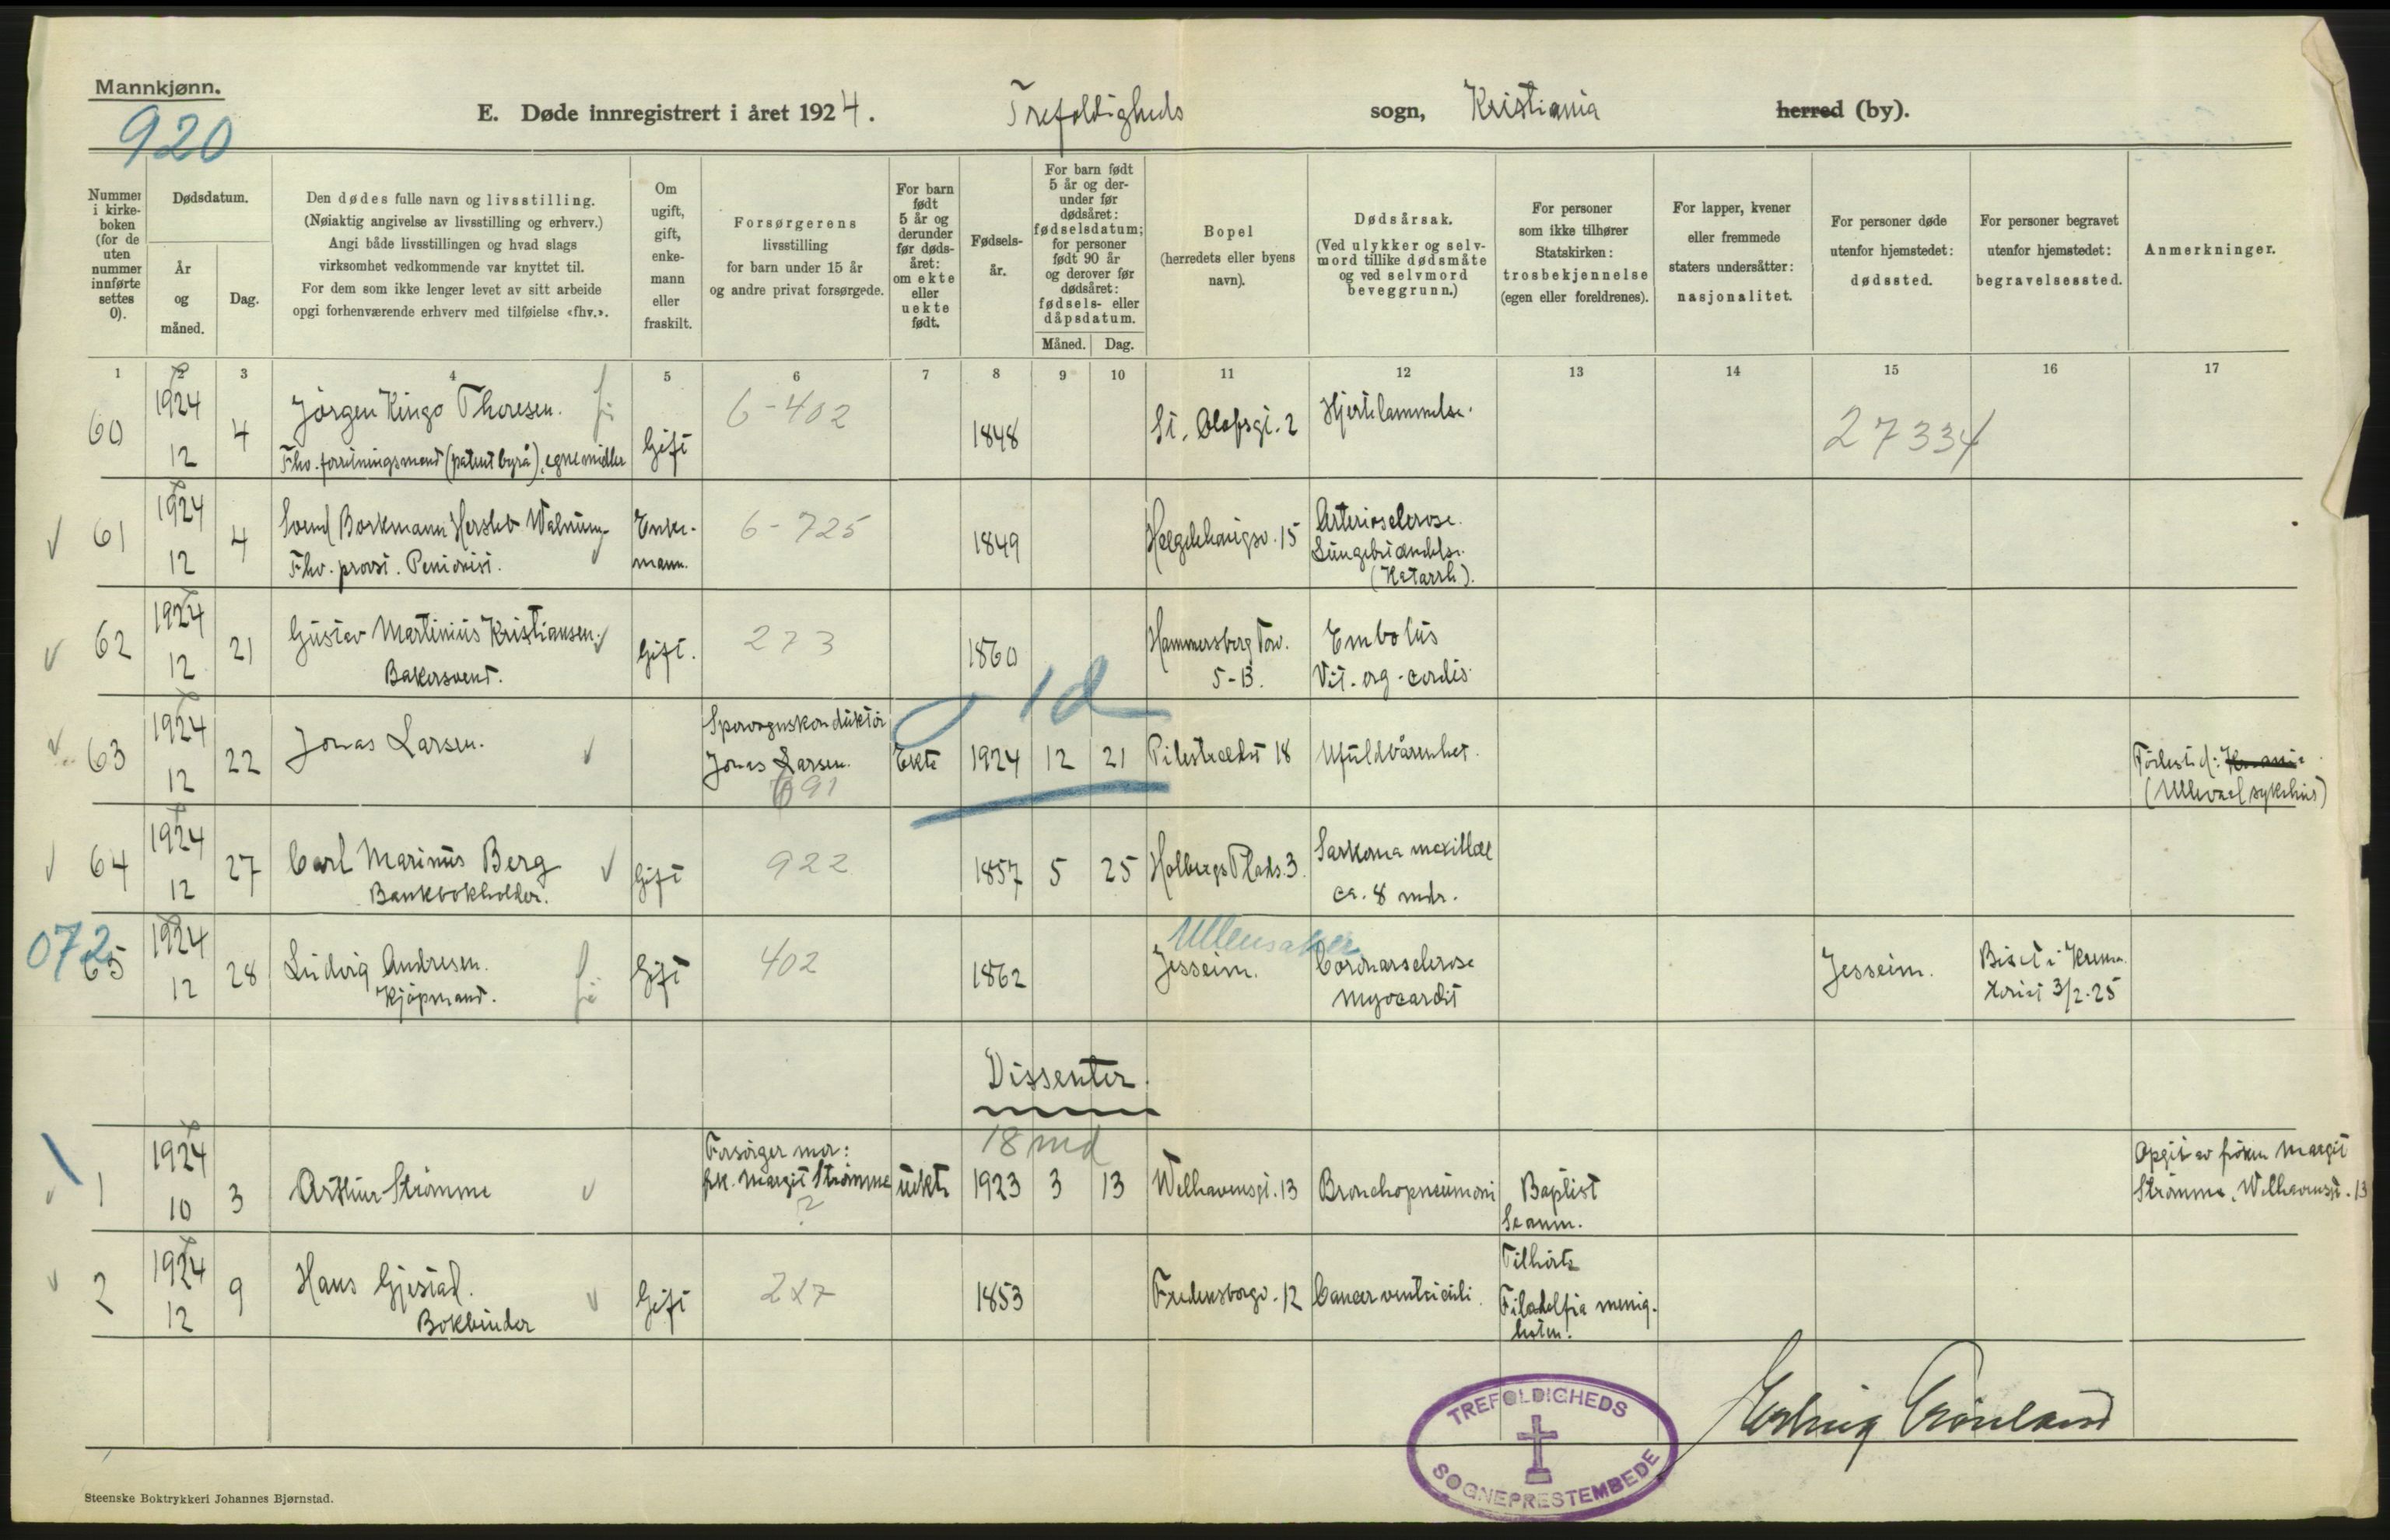 Mannkjønn.
920
E. Døde innregistrert i året 1924. Trefoldigheds sogn, Kristiania herred (by).
Nummer i kirke-boken (for de uten nummer innførte settes 0).
Dødsdatum.
År og måned.
Dag.
Den dødes fulle navn og livsstilling.
(Nøiaktig angivelse av livsstilling og erhverv.)
Angi både livsstillingen og hvad slags
virksomhet vedkommende var knyttet til.
For dem som ikke lenger levet av sitt arbeide
opgi forhenværende erhverv med tilføielse «fhv.».
Om ugift, gift, enke-mann eller fraskilt.
Forsørgerens
livsstilling
for barn under 15 år
og andre privat forsørgede.
For barn født 5 år og derunder før døds-året: om ekte eller uekte født.
Fødsels-år.
For barn født 5 år og der-under før dødsåret: fødselsdatum; for personer født 90 år og derover før dødsåret: fødsels- eller dåpsdatum.
Måned. Dag.
Bopel
(herredets eller byens navn).
Dødsårsak.
(Ved ulykker og selv-mord tillike dødsmåte og ved selvmord beveggrunn.)
For personer som ikke tilhører Statskirken: trosbekjennelse (egen eller foreldrenes).
For lapper, kvener eller fremmede staters undersåtter: nasjonalitet.
For personer døde utenfor hjemstedet: dødssted.
For personer begravet utenfor hjemstedet: begravelsessted.
Anmerkninger.
1 2 3 4 5 6 7 8 9 10 11 12 13 14 15 16 17
60 1924 12 4 Jörgen Kingo Thoresen. Gift 6-402 1848 St. Olafsgt. 2 Hjertelammelse. 27334
Fhv. forretningsmand (patentbyrå), egne midler
61 1924 12 4 Svend Borkmann Hersleb Walnum Enke-mann. 6-725 1849 Hægdehaugsv. 15 Arteriosclerose.
Fhv. provst. Penionist. Lungebetændelse. (Katarrh).
62 1924 12 21 Gustav Martinius Kristiansen. Gift. 273 1860 Hammersborg Torv. 5-B. Embolus
Bakersvend. Vit. org. cordis
1d
63 1924 12 22 Jonas Larsen. Sporvognskonduktör Jonas Larsen. 691 Ekte 1924 12 21 Pilestrædet 18 Ufuldbårenhet. Födested:
(Ullevaal sykehus)
64 1924 12 27 Carl Marinus Berg Gift 922 1857 5 25 Holbergs Plads. 3. Sarkoma maxillae
Bankbokholder. ca. 8 mdr.
072
65 1924 12 28 Ludvig Andresen. Gift 402 1862 Ullensaker Jesseim. Coronarsclerose Jesseim. Bisat i Krema-
Kjöpmand. Myocardit toriet 3/2-25
Dissenter.
18 md
1 1924 10 3 Arthur Strömme Forsörger mor: frk. Margit Strömme ? uekte 1923 3 13 Welhavensgt. 13 Bronchopneumoni Baptist Opgit av fröken Margit
Strömme, Welhavensgt. 13
2 1924 12 9 Hans Gjestad. Gift 227 1853 Fredensborgv. 12 Cancer ventriculi. Tilhörte
Bokbinder Filadelfia menig-
heten.
TREFOLDIGHEDS
SOGNEPRESTEMBEDE
Steenske Boktrykkeri Johannes Bjørnstad.